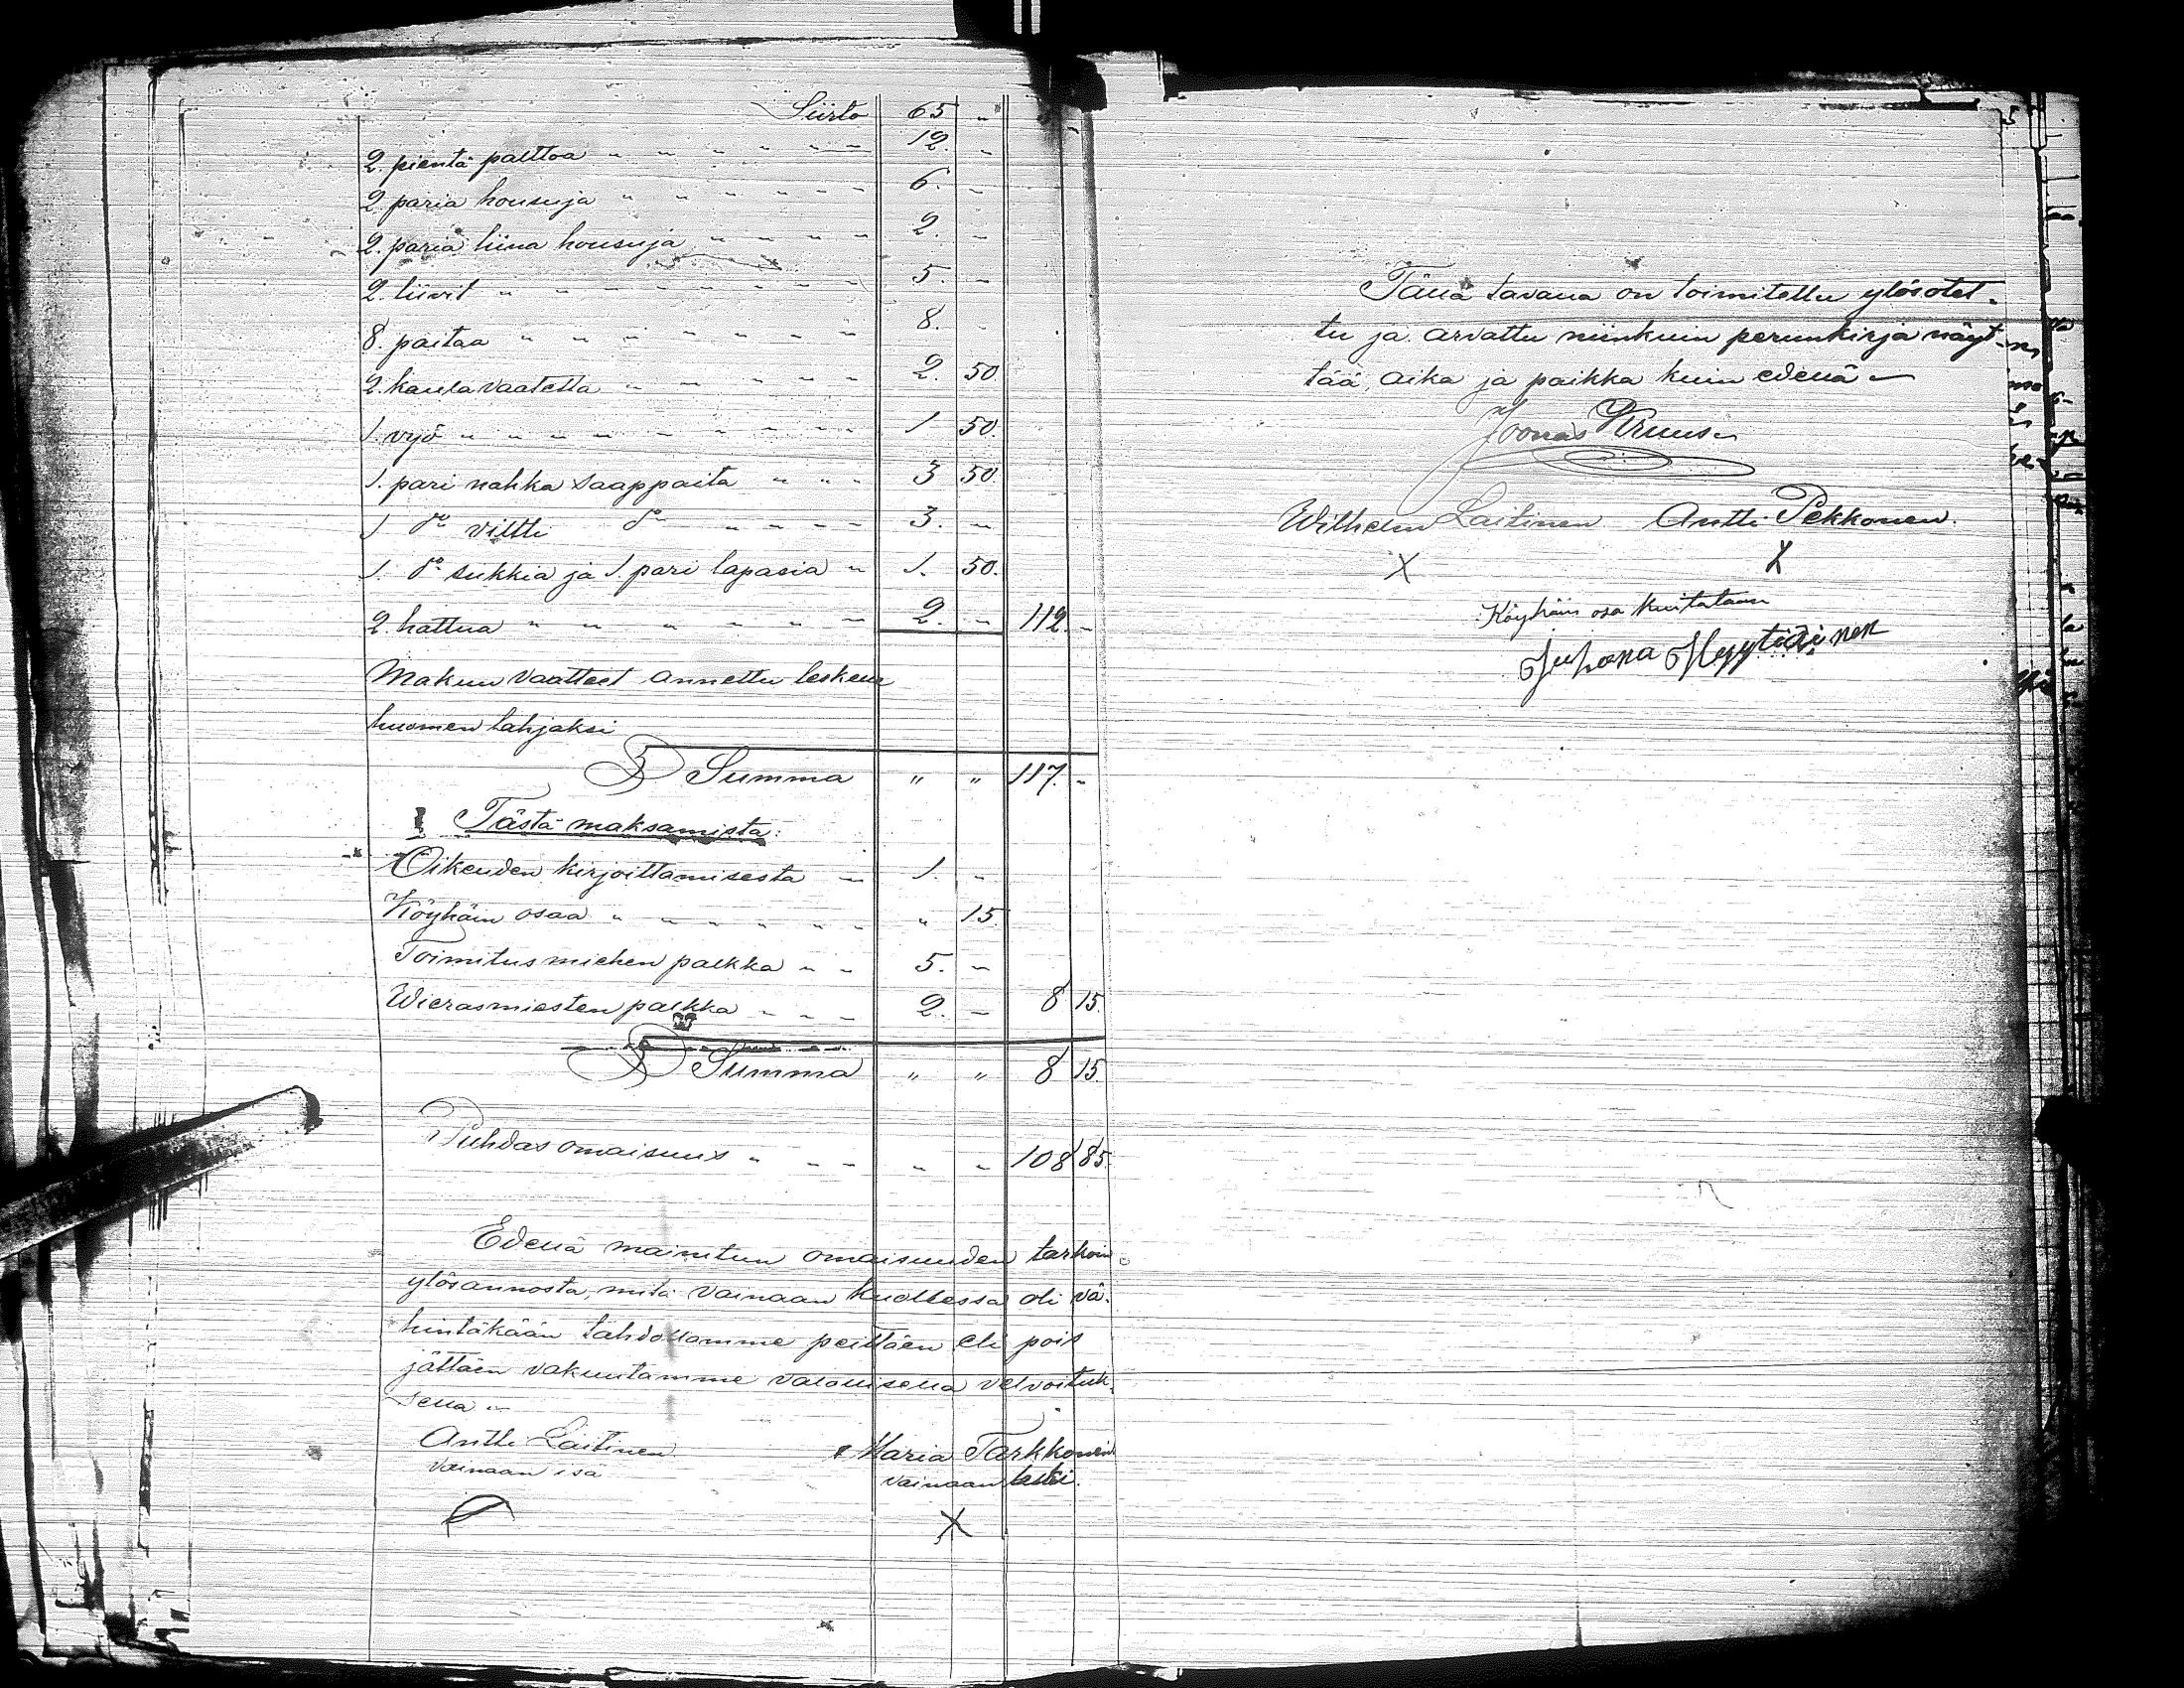 Siirto 65 "
2. pientä palttoa " " " " " " 12. "
2 paria housuja " " " " " " 6. "
2. paria liina housuja " " " " 2. "
2. liivit " " " " " " " " 5. "
8. paitaa " " " " " " " 8. "
2. kaulavaatetta " " " " " 2. 50.
1. vyö " " " " " " " " 1 50.
1. pari nahka saappaita " " " 3 50.
1 do viltti do " " " " 3. "
1. do sukkia ja 1. pari lapasia " 1. 50.
2. hattua " " " " " " " 2. " 112. "
Makuu vaatteet annettu leskelle
huomen lahjaksi
Summa " " 117. "
Tästä maksamista:
Oikeuden kirjoittamisesta " 1. "
Köyhäin osaa " " " " " " " 15
Toimitusmiehen palkka " " 5. "
Wierasmiesten palkka " " " 2. " 8 15.
Summa " " 8 15.
Puhdas omaisuus " " " " " 108 85.
Edellä mainitun omaisuuden tarkoin
ylösannosta, mitä vainaan kuollessa oli vä-
hintäkään tahdollamme peittäen eli pois
jättäen vakuutamme valallisella velvoituk-
sella "
Antti Laitinen Maria Tarkkonen
vainaan isä vainaan leski.
X
Tällä tavalla on toimitettu ylösotet-
tu ja arvattu niinkuin perunkirja näyt-
tää, aika ja paikka kuin edellä "
Joonas Kruus
Wilhelm Laitinen Antti Pekkonen.
X X
Köyhäin osa kuitataan
Juhana Hyytiäinen